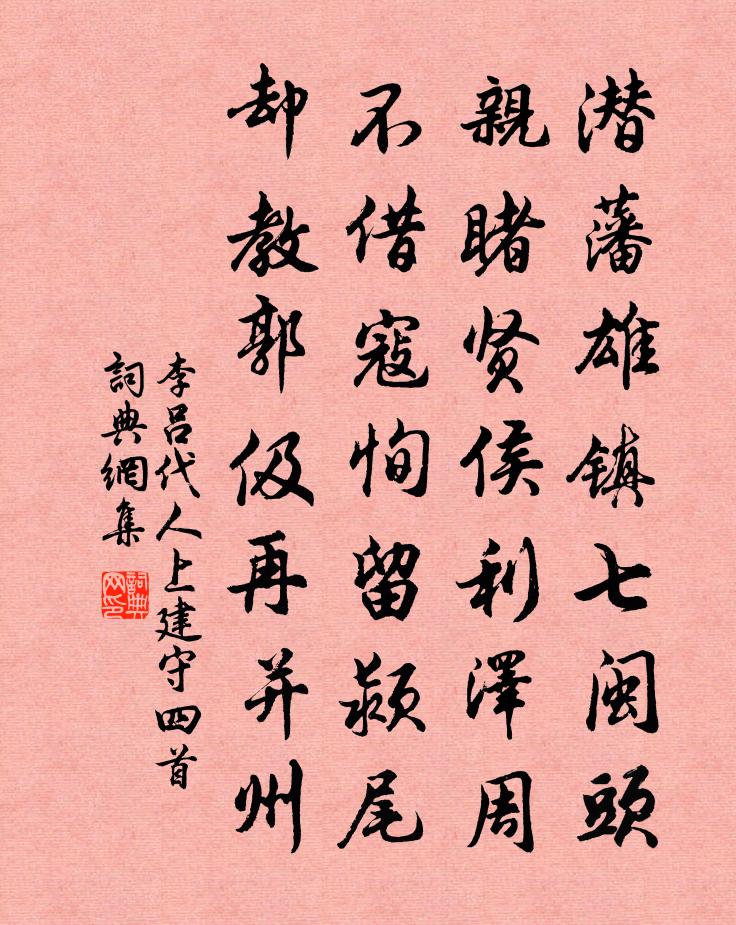 潜藩雄镇七闽頭
親睹贤侯利澤周
不借寇恂留颍尾
却教郭伋再并州
李呂代人上建守四首
詞典網集
詞典網印